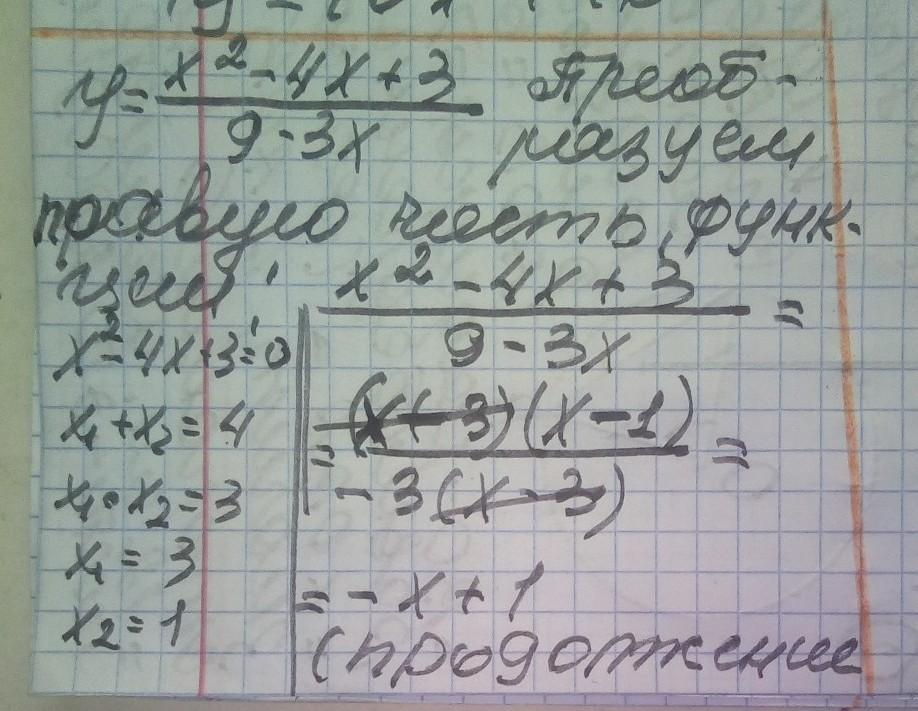 y = (x² - 4x + 3) / (9 - 3x) Преоб-
разуем
правую часть функ-
ции:
x² - 4x + 3 = 0
x₁ + x₂ = 4
x₁ • x₂ = 3
x₁ = 3
x₂ = 1
(x² - 4x + 3) / (9 - 3x) =
= (x - 3)(x - 1) / -3(x - 3) =
= - x + 1
(продолжение